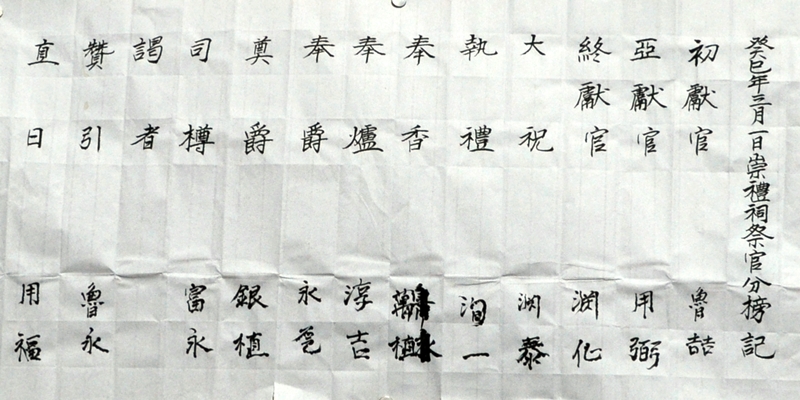 癸巳年三月一日崇禮祠祭官分榜記
初獻官 魯喆
亞獻官 用弼
終獻官 潤化
大祝 潤泰
執禮 洵一
奉香 植
奉爐 淳吉
奉爵 永
奠爵 銀植
司樽 富永
謁者
贊引 魯永
直日 用福